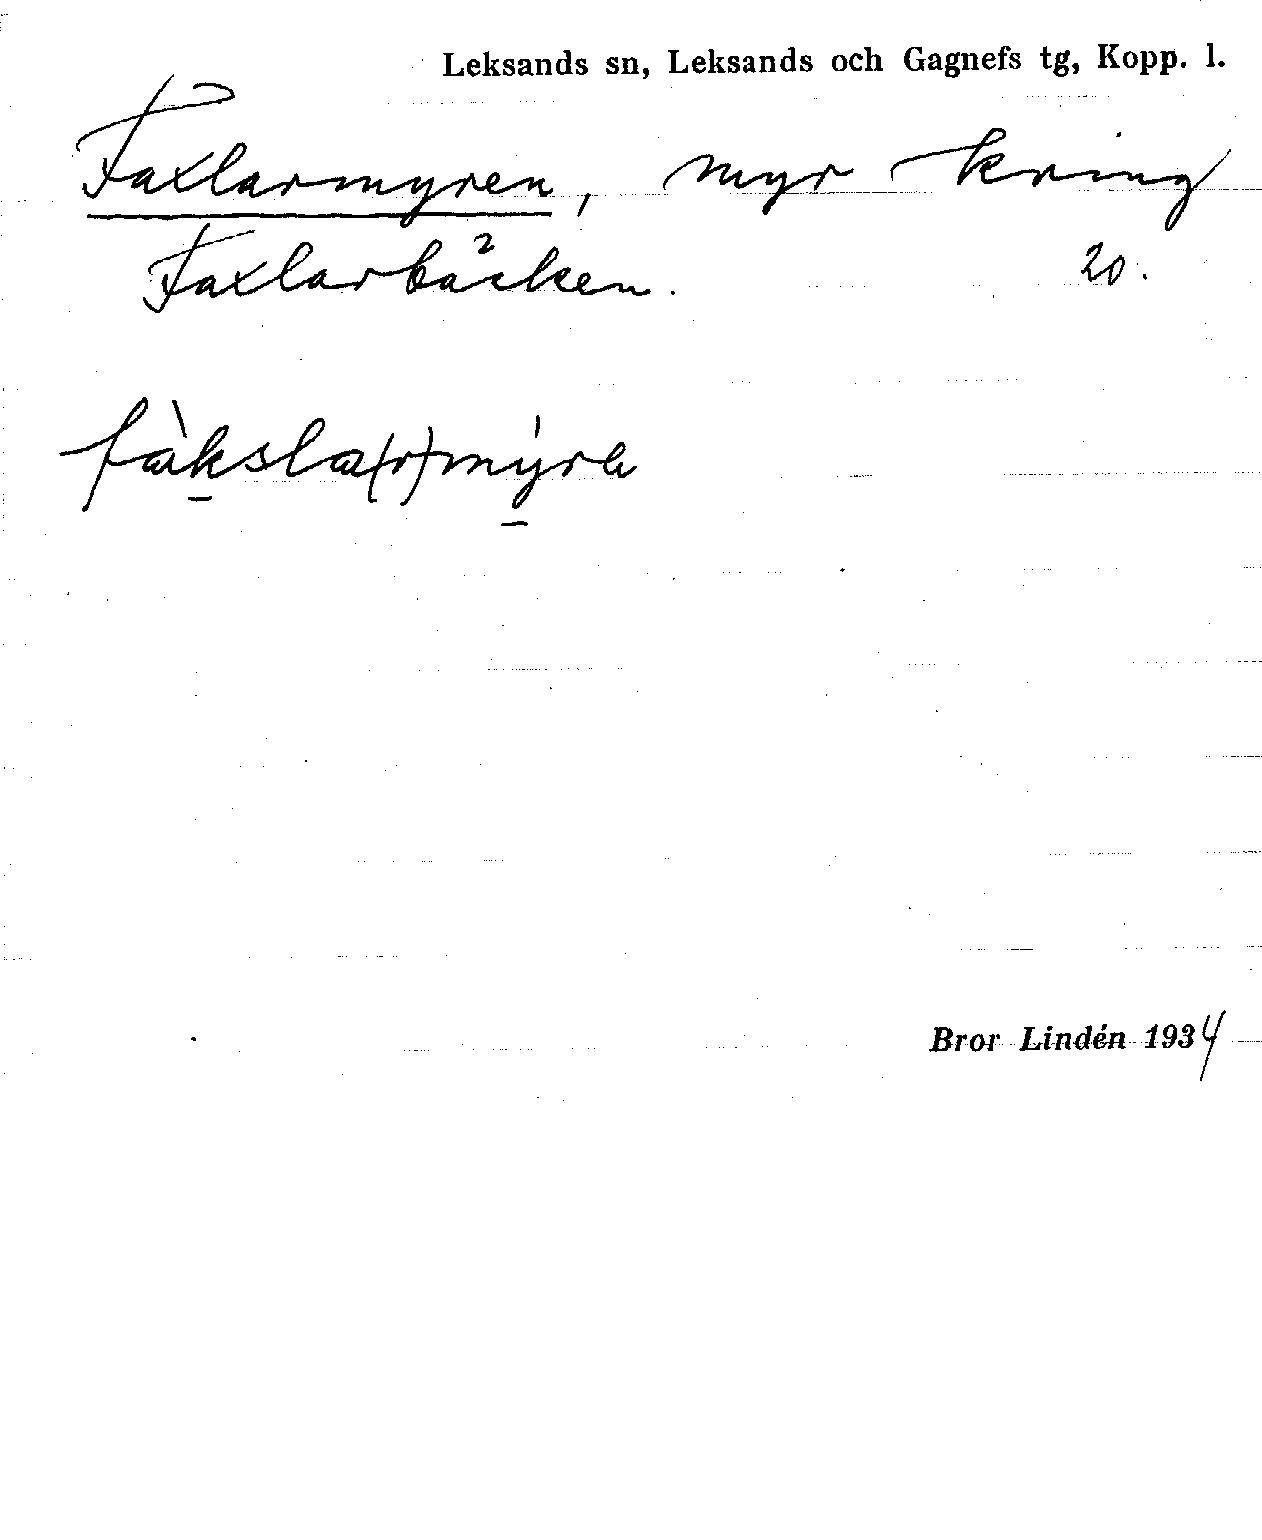 Leksands sn, Leksands och Gagnefs tg, Kopp. l.
Faxlarmyren, myr kring
Faxlarbäcken. 20.
fàksla(r)mýra
Bror Lindén 1934